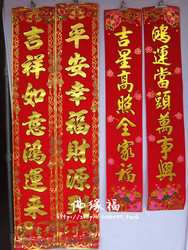 鴻運當頭萬事興
吉星高照全家福
平安幸福財源
吉祥如意鴻運來
佛缘福